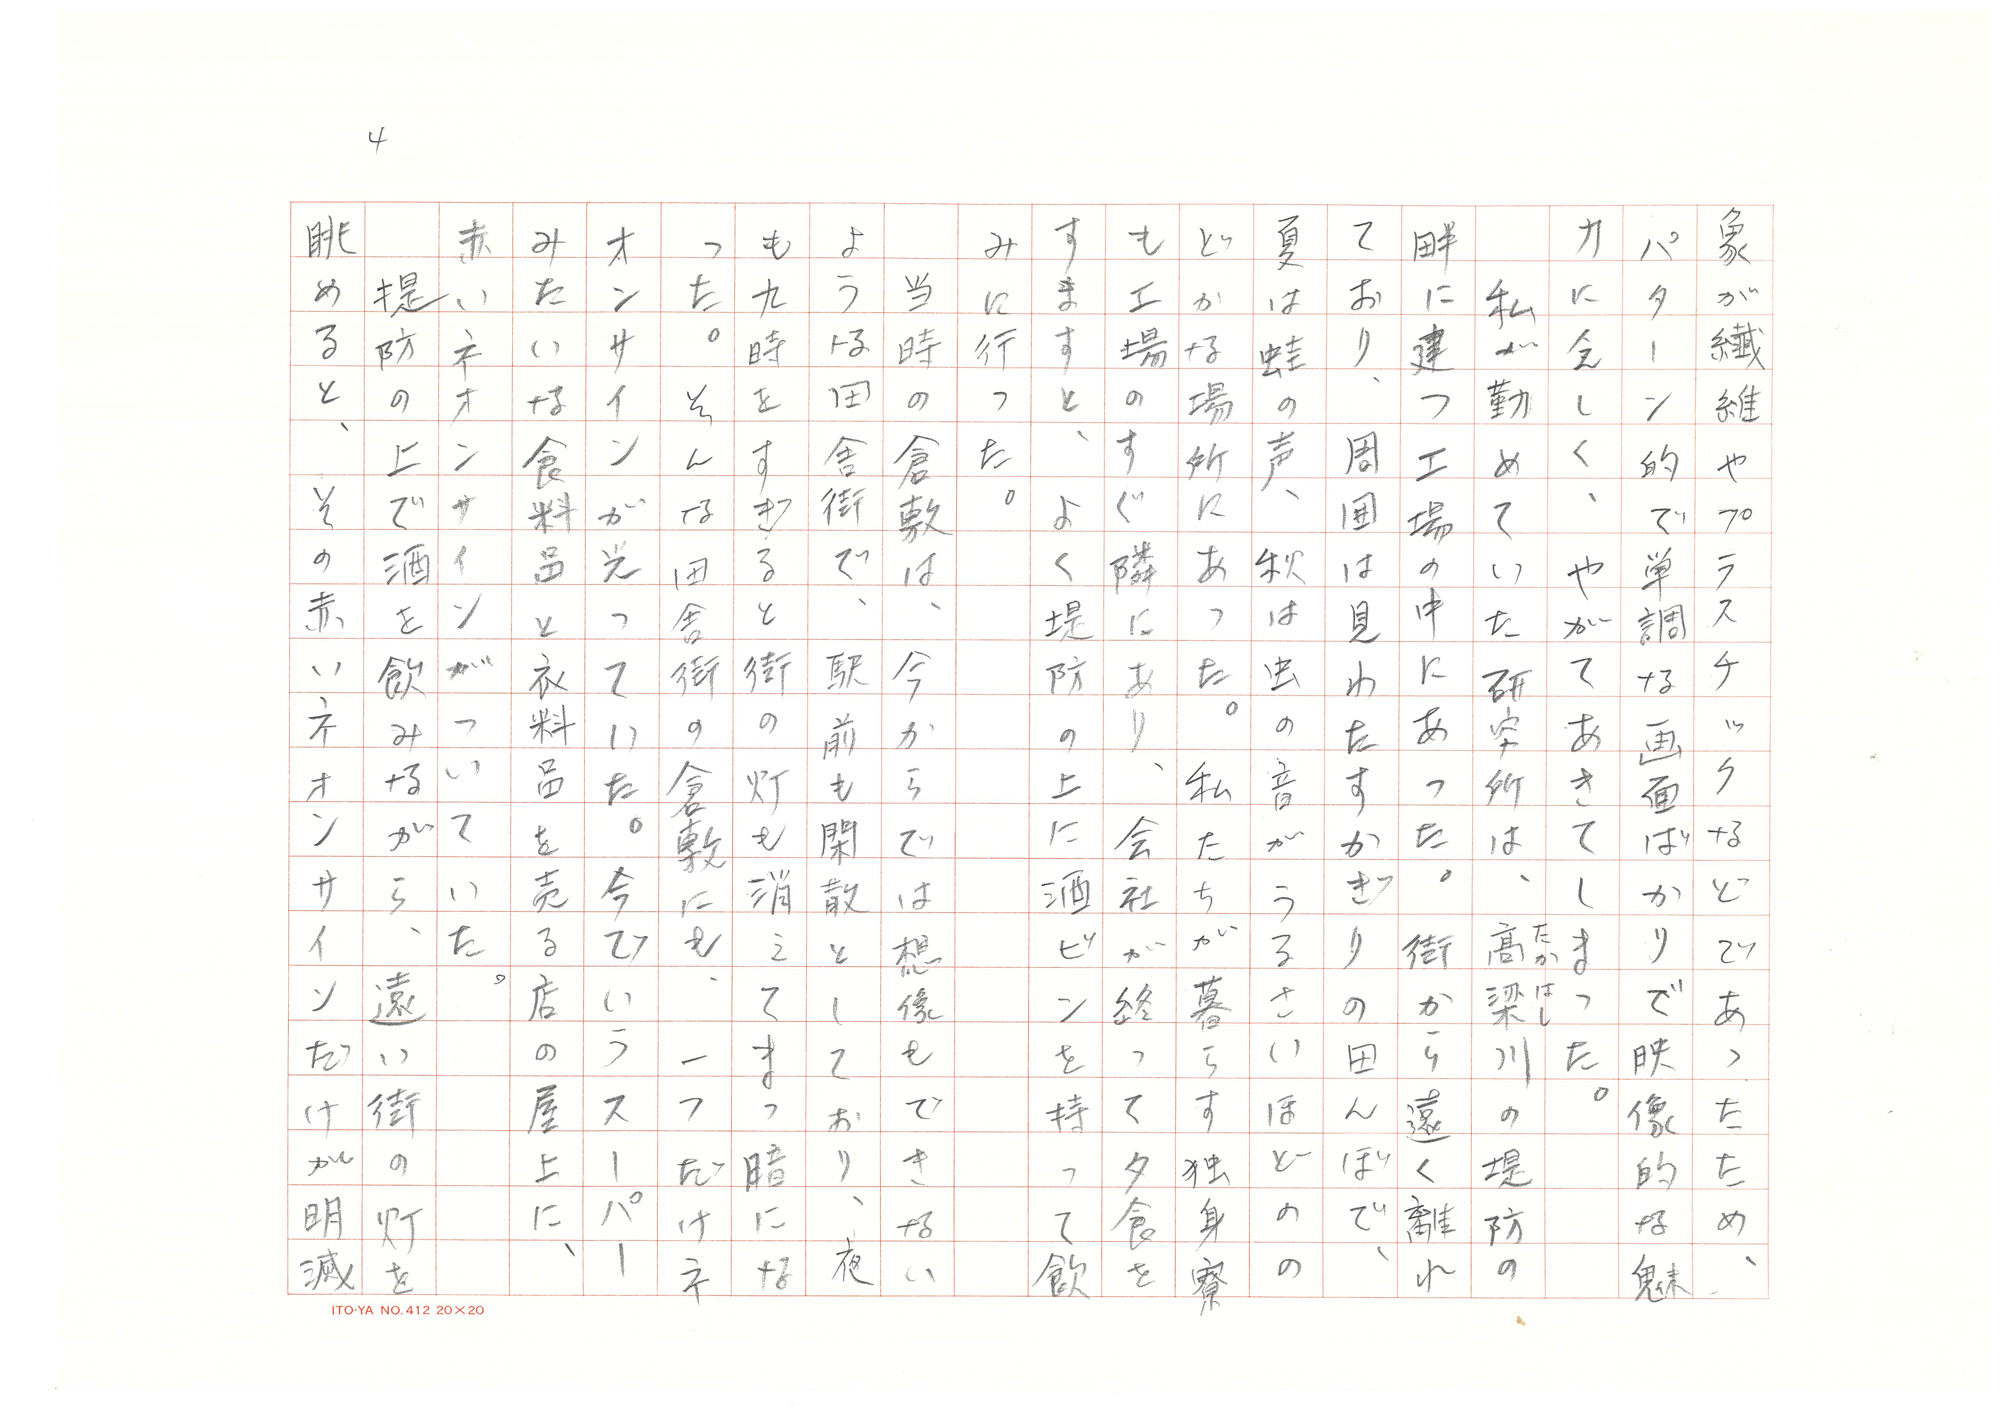 4
象が繊維やプラスチックなどであったため、
パターン的で単調な画面ばかりで映像的な魅
力に乏しく、やがてあきてしまった。
私が勤めていた研究所は、高梁川の堤防の
たか はし
畔に建つ工場の中にあった。街から遠く離れ
ており、周囲は見わたすかぎりの田んぼで、
夏は蛙の声、秋は虫の音がうるさいほどのの
どかな場所にあった。私たちが暮らす独身寮
も工場のすぐ隣にあり、会社が終って夕食を
すますと、よく堤防の上に酒ビンを持って飲
みに行った。
当時の倉敷は、今からでは想像もできない
ような田舎街で、駅前も閑散としており、夜
も九時をすぎると街の灯も消えてまっ暗にな
った。そんな田舎街の倉敷にも、一つだけネ
オンサインが光っていた。今でいうスーパー
みたいな食料品と衣料品を売る店の屋上に、
赤いネオンサインがついていた。
堤防の上で酒を飲みながら、遠い街の灯を
眺めると、その赤いネオンサインだけが明滅
ITO-YA NO.412 20×20